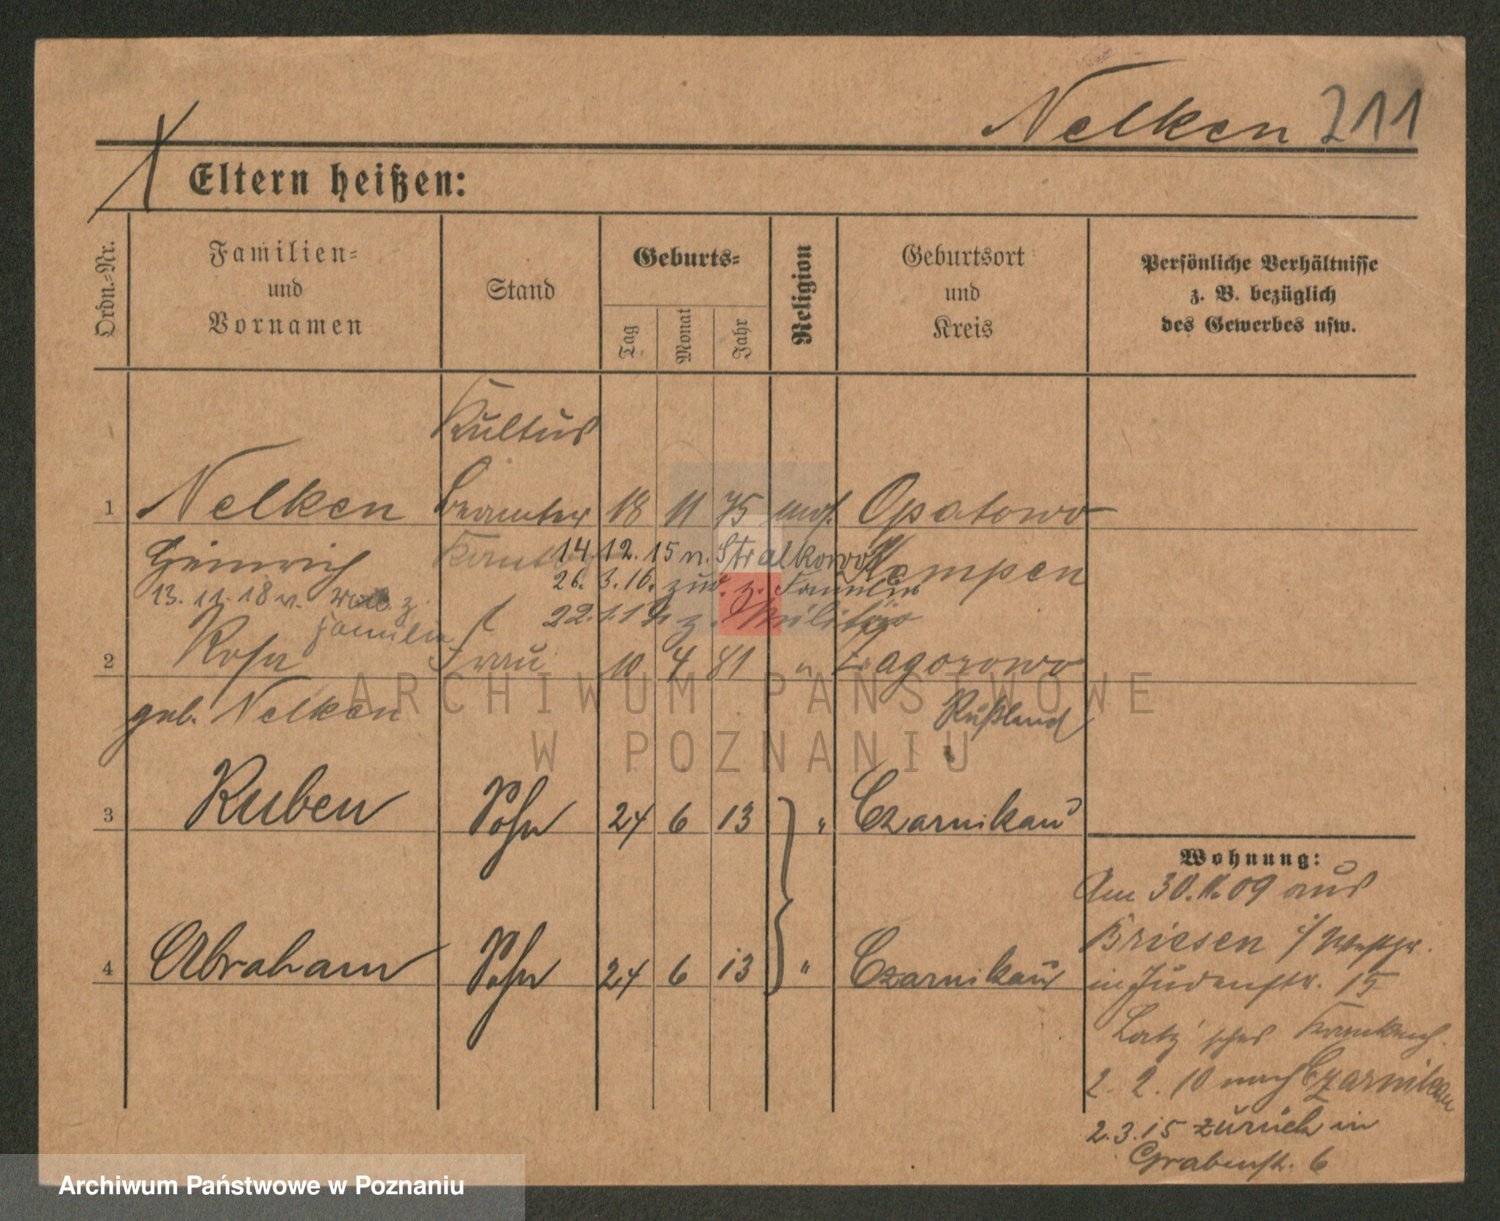 Nelken 211
Eltern heißen:
Ordn.-Nr.
Familien-
und
Vornamen
Stand
Geburts-
Tag
Monat
Jahr
Religion
Geburtsort
und
Kreis
Persönliche Verhältnisse
z. B. bezüglich
des Gewerbes usw.
Kultus
1 Nelken Beamter 18 11 75 mos. Opatowo
Heinrich 14.12.15 n. Stralkowo Kempen
26. 3. 16. zur. z. Familie
13. 11. 18 v. z. Familie
z. Militär
2 Rosa Frau 10 4 81 "
geb. Nelken Rußland
3 Ruben Sohn 24 6 13 " Czarnikau
4 Abraham Sohn 24 6 13 " Czarnikau
Wohnung:
Am 30.11.09 aus
Briesen i/Westpr.
in Judenstr. 15
Latz'sches Krankenh.
2. 2. 10 nach Czarnikau
2.3.15 zurück in
Grabenstr. 6
ARCHIWUM PAŃSTWOWE
W POZNANIU
Archiwum Państwowe w Poznaniu